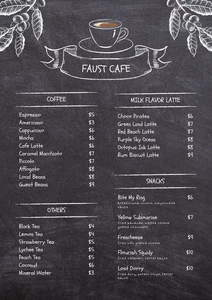 FAUST CAFE
COFFEE
Espresso $5
Americano $3
Cappuccino $6
Mocha $6
Cafe Latte $6
Caramel Macchiato $7
Piccolo $7
Affogato $7
Local Beans $8
Guest Beans $4
OTHERS
Black Tea $4
Lemon Tea $4
Strawberry Tea $5
Lychee Tea $5
Peach Tea $5
Coconut $6
Mineral Water $3
MILK FLAVOR LATTE
Choco Pirates $6
Green Land Latte $7
Red Beach Latte $7
Purple Sky Ocean $8
Octopus Ink Latte $8
Rum Biscuit Latte $4
SNACKS
Bite My Ring $6
Yellow Submarine $7
Frescheese $9
Flourish Squidy $10
Lost Dorry $10